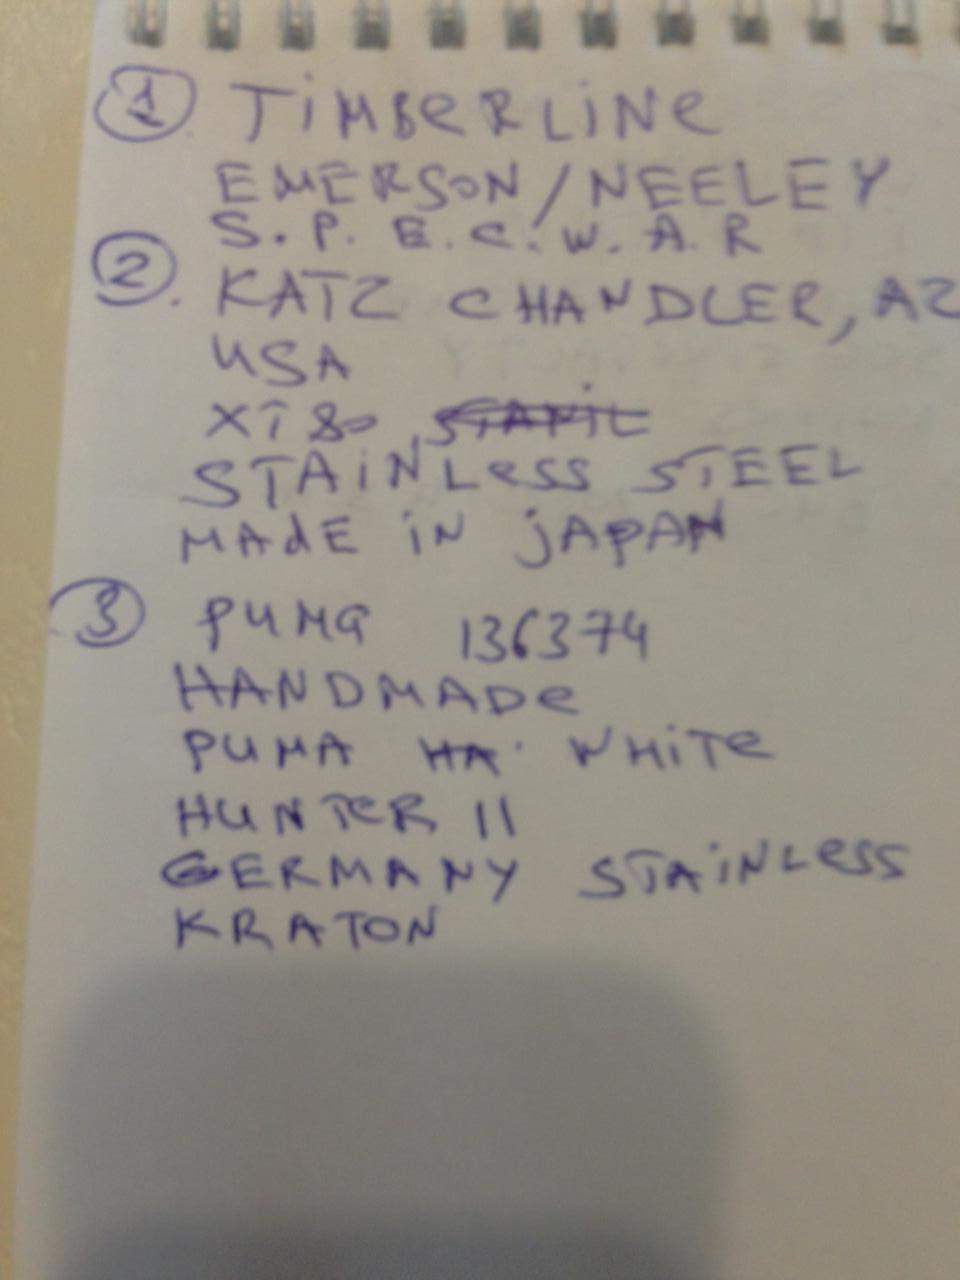 1 TiMBeRLiNe
EMERSON/NEELEY
S.P.E.C.W.A.R
2. KATZ CHANDLER, AZ
USA
XT80
STAiNLess STEEL
MAdE iN jAPAN
3 PUMA 136374
HANDMADe
PUMA HA WHiTe
HUNTeR II
GERMANY STAiNLess
KRATON